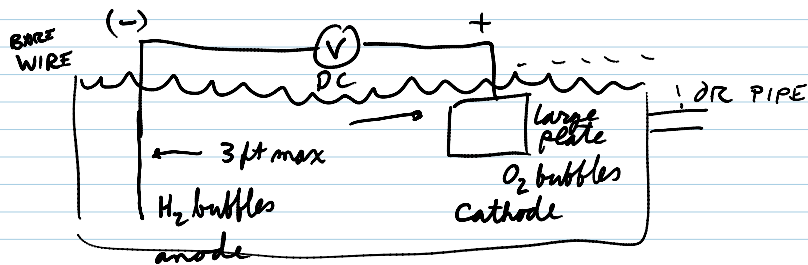 (-)
+
BARE
WIRE
V
DC
OR PIPE
large
plate
3 ft max
O2 bubbles
H2 bubbles
Cathode
anode